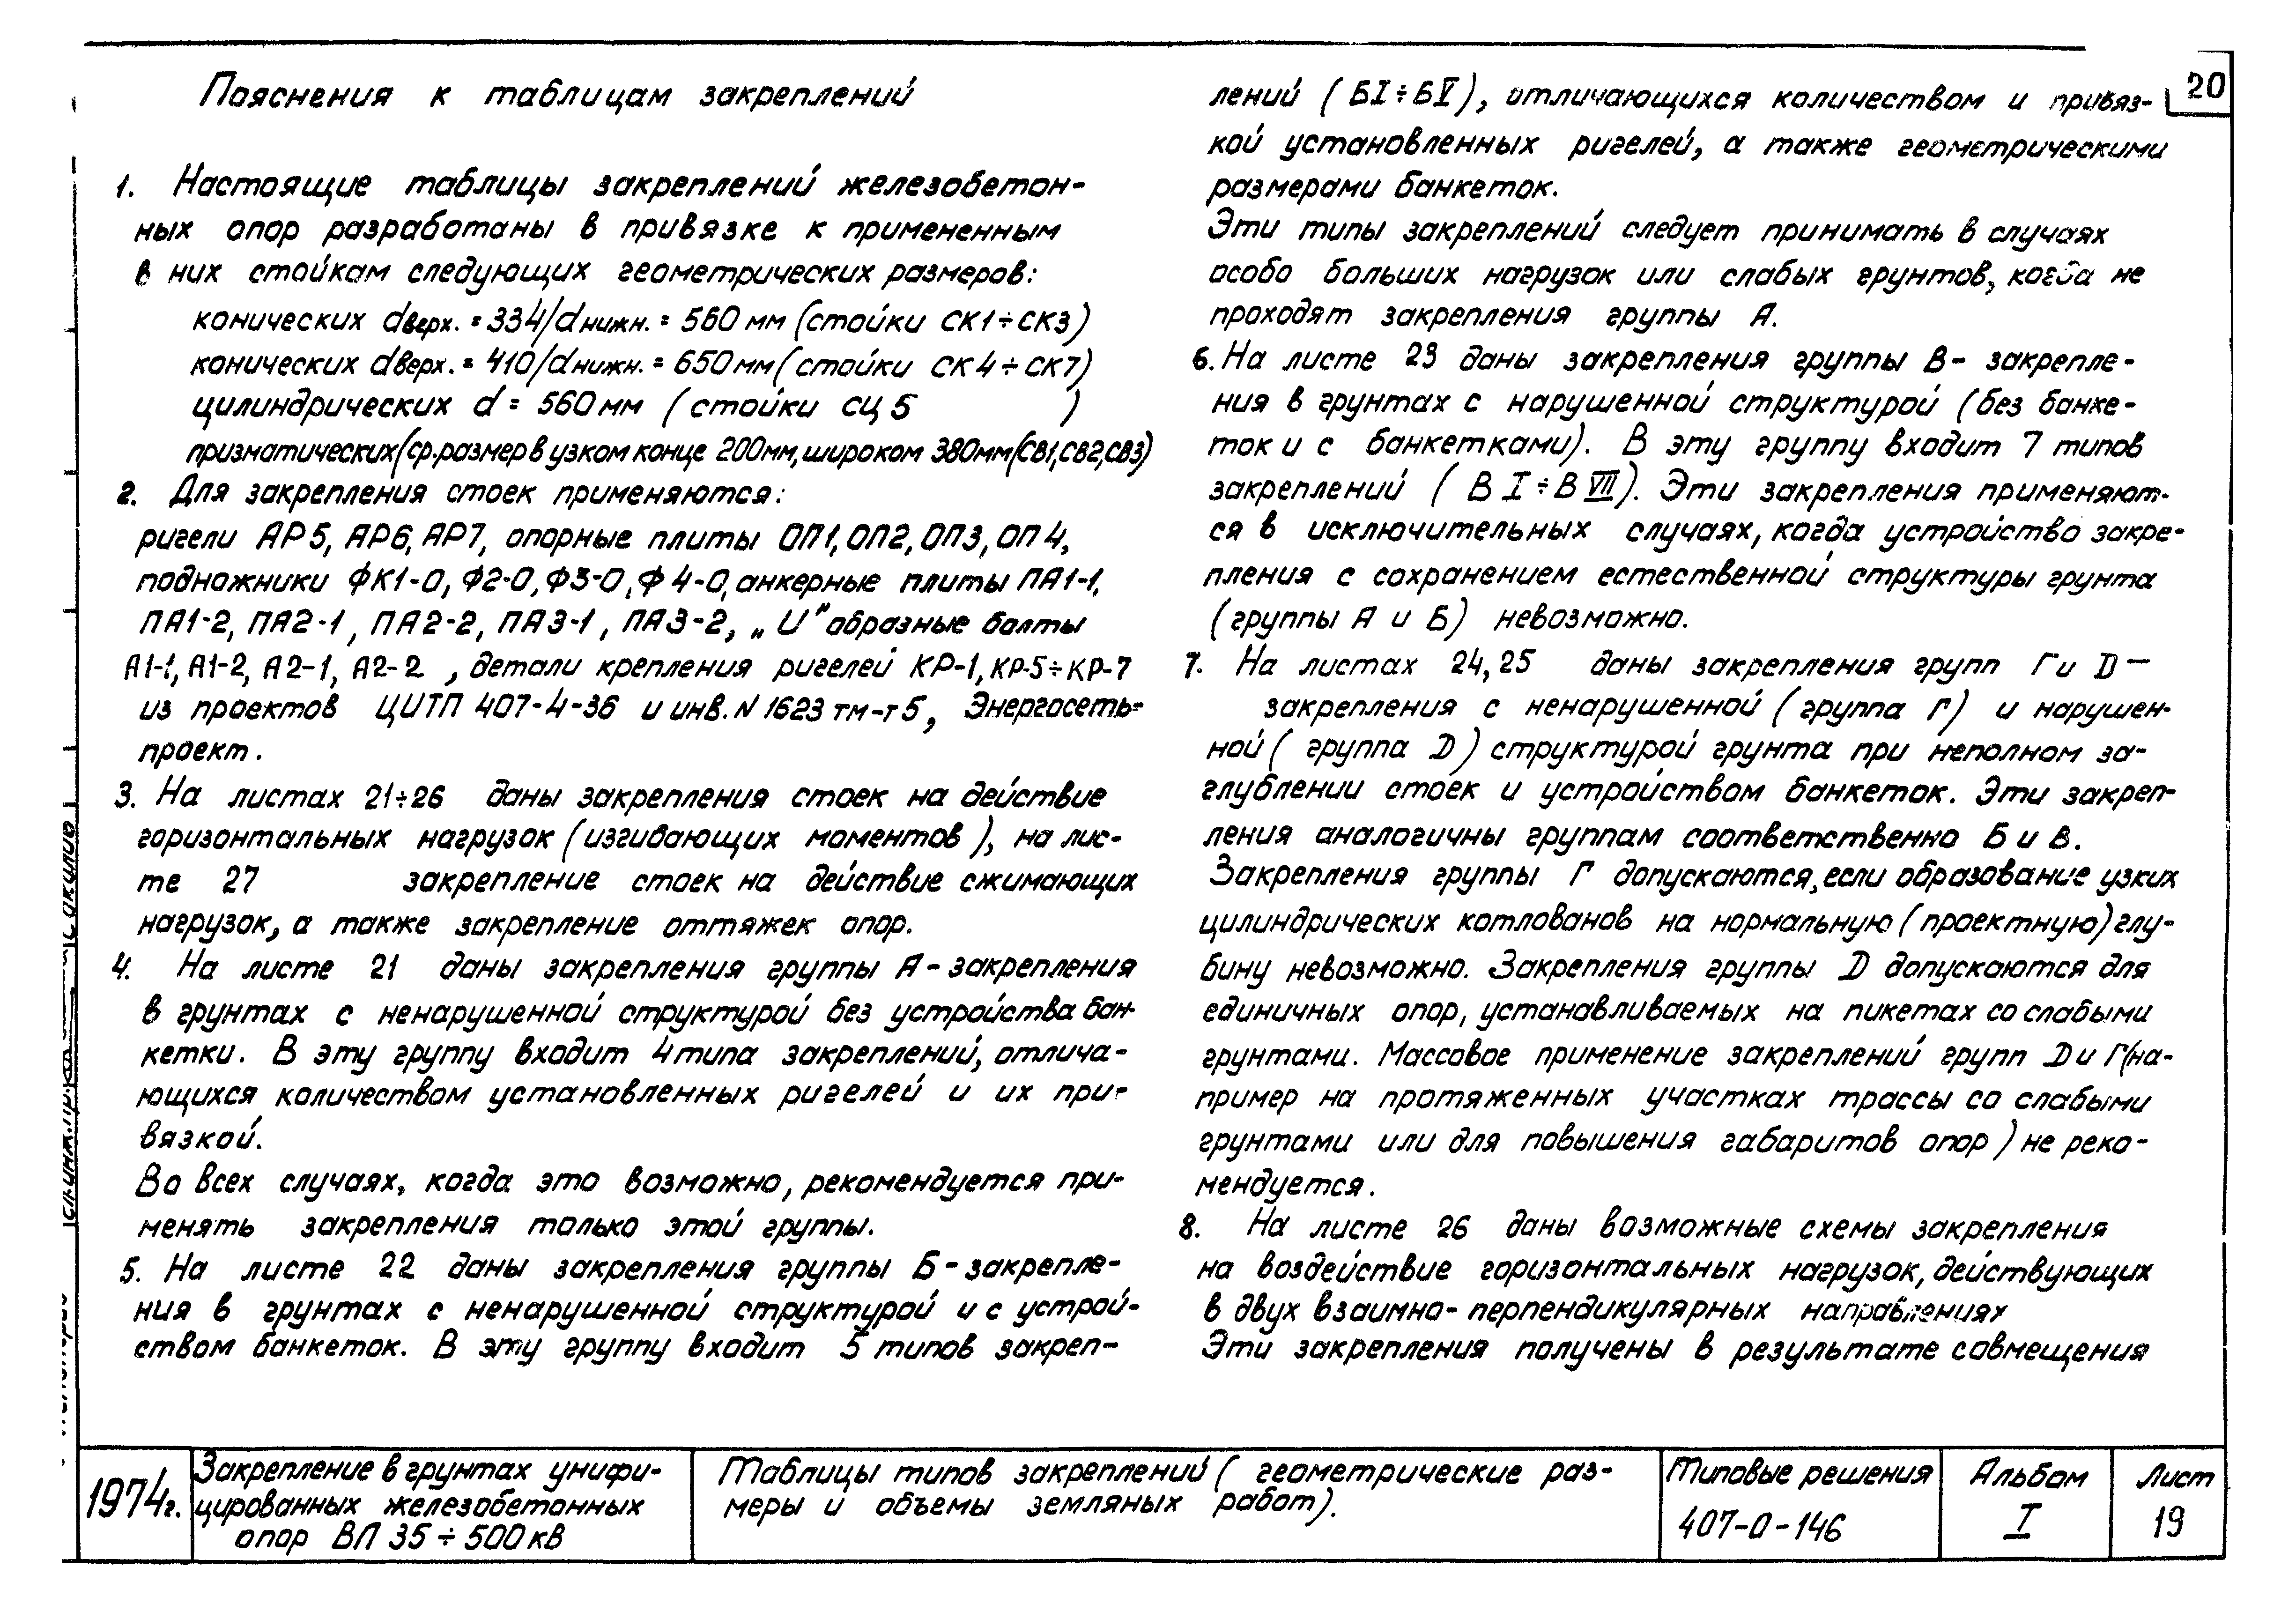 20
Пояснения к таблицам закреплений
1. Настоящие таблицы закреплений железобетон-
ных опор разработаны в привязке к примененным
в них стойкам следующих геометрических размеров:
конических dверх. = 334/dнижн. = 560 мм (стойки СК1÷СК3)
конических dверх. = 410/dнижн. = 650 мм (стойки СК4÷СК7)
цилиндрических d = 560 мм (стойки СЦ5 )
призматических (ср. размер в узком конце 200мм, широком 380мм (СВ1, СВ2, СВ3)
2. Для закрепления стоек применяются:
ригели АР5, АР6, АР7, опорные плиты ОП1, ОП2, ОП3, ОП4,
подножники ФК1-0, Ф2-0, Ф3-0, Ф4-0, анкерные плиты ПА1-1,
ПА1-2, ПА2-1, ПА2-2, ПА3-1, ПА3-2, „U" образные болты
А1-1, А1-2, А2-1, А2-2 , детали крепления ригелей КР-1, КР-5÷КР-7
из проектов ЦИТП 407-4-36 и инв. N 1623 тм-т5, Энергосеть-
проект.
3. На листах 21÷26 даны закрепления стоек на действие
горизонтальных нагрузок (изгибающих моментов), на лис-
те 27 закрепление стоек на действие сжимающих
нагрузок, а также закрепление оттяжек опор.
4. На листе 21 даны закрепления группы А - закрепления
в грунтах с ненарушенной структурой без устройства бан-
кетки. В эту группу входит 4 типа закреплений, отлича-
ющихся количеством установленных ригелей и их при-
вязкой.
Во всех случаях, когда это возможно, рекомендуется при-
менять закрепления только этой группы.
5. На листе 22 даны закрепления группы Б - закрепле-
ния в грунтах с ненарушенной структурой и с устрой-
ством банкеток. В эту группу входит 5 типов закреп-
лений (БI÷БV), отличающихся количеством и привяз-
кой установленных ригелей, а также геометрическими
размерами банкеток.
Эти типы закреплений следует принимать в случаях
особо больших нагрузок или слабых грунтов, когда не
проходят закрепления группы А.
6. На листе 23 даны закрепления группы В - закрепле-
ния в грунтах с нарушенной структурой (без банке-
ток и с банкетками). В эту группу входит 7 типов
закреплений (ВI÷ВVII). Эти закрепления применяют-
ся в исключительных случаях, когда устройство закре-
пления с сохранением естественной структуры грунта
(группы А и Б) невозможно.
7. На листах 24, 25 даны закрепления групп Г и D —
закрепления с ненарушенной (группа Г) и нарушен-
ной (группа D) структурой грунта при неполном за-
глублении стоек и устройством банкеток. Эти закреп-
ления аналогичны группам соответственно Б и В.
Закрепления группы Г допускаются, если образование узких
цилиндрических котлованов на нормальную (проектную) глу-
бину невозможно. Закрепления группы D допускаются для
единичных опор, устанавливаемых на пикетах со слабыми
грунтами. Массовое применение закреплений групп D и Г (на-
пример на протяженных участках трассы со слабыми
грунтами или для повышения габаритов опор) не реко-
мендуется.
8. На листе 26 даны возможные схемы закрепления
на воздействие горизонтальных нагрузок, действующих
в двух взаимно-перпендикулярных направлениях
Эти закрепления получены в результате совмещения
1974г.
Закрепление в грунтах унифи-
цированных железобетонных
опор ВЛ 35÷500 кВ
Таблицы типов закреплений (геометрические раз-
меры и объемы земляных работ).
Типовые решения
407-0-146
Альбом
I
Лист
19